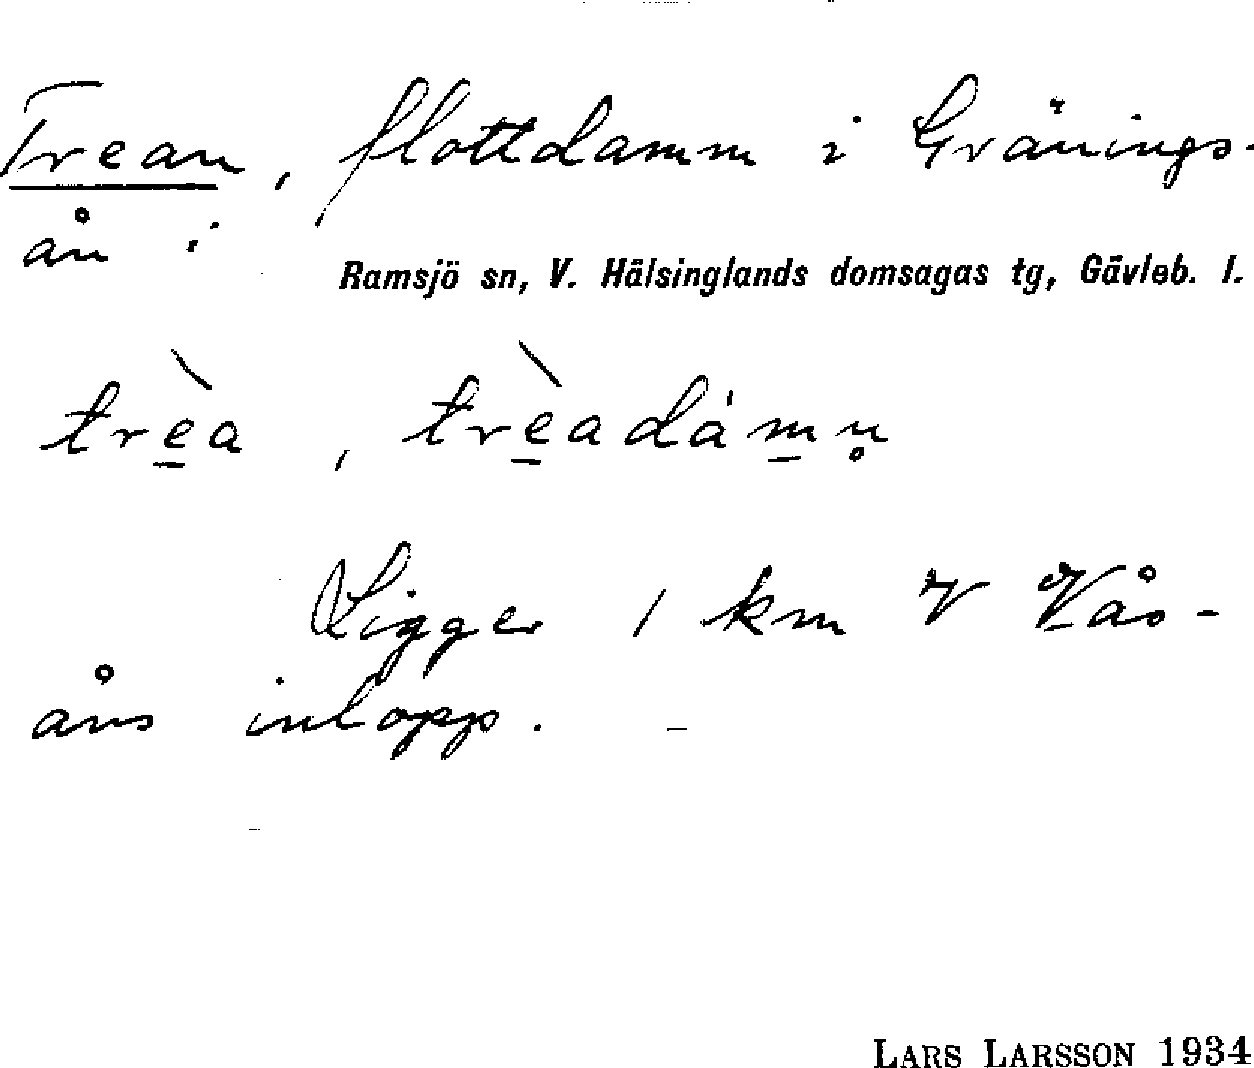 Trean, flottdamm i Gränings-
ån i
Ramsjö sn, V. Hälsinglands domsagas tg, Gävleb. l.
trè̠a, trè̠adám̠n̥
Ligger 1 km V Vås-
åns inlopp. –
LARS LARSSON 1934